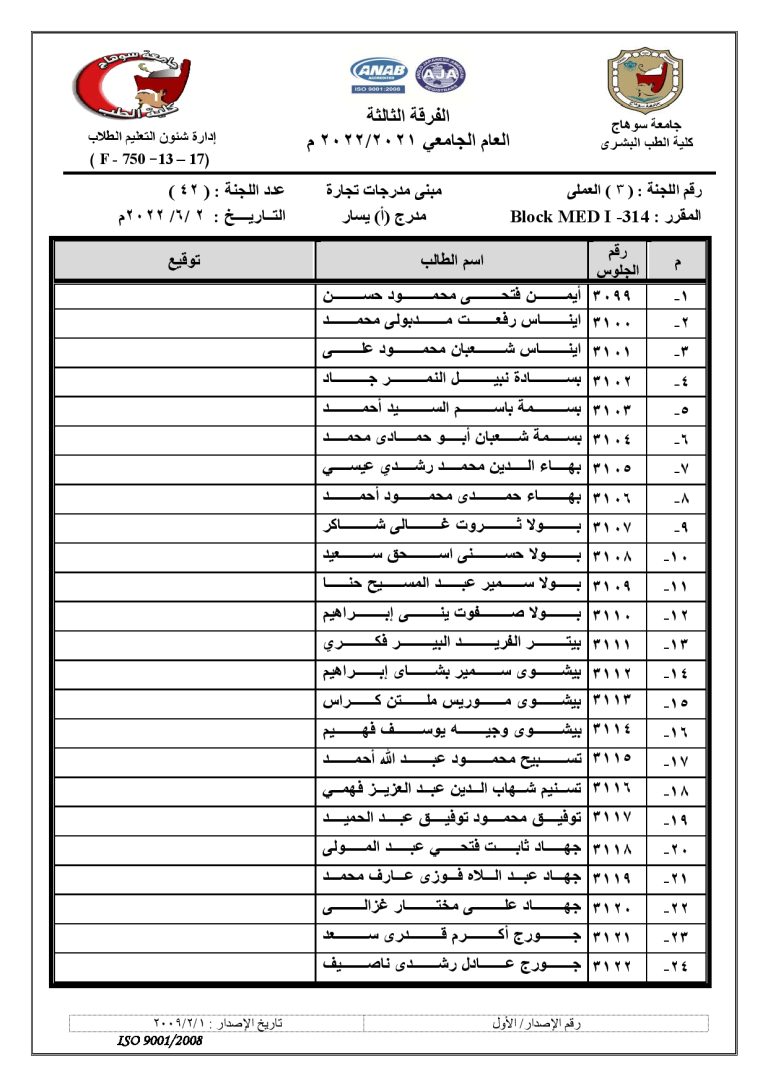 جامعة سوهاج
كلية الطب
ANAB
ACCREDITED
ISO 9001:2008
AJA
جامعة سوهاج
كلية الطب البشرى
الفرقة الثالثة
العام الجامعي ٢٠٢٢/٢٠٢١ م
إدارة شئون التعليم الطلاب
( F - 750 –13 – 17)
رقم اللجنة : ( ٣ ) العملى مبنى مدرجات تجارة عدد اللجنة : ( ٤٢ )
المقرر : Block MED I -314 مدرج (أ) يسار التاريخ : ٢ /٦/ ٢٠٢٢م
م رقم الجلوس اسم الطالب توقيع
١- ٣٠٩٩ أيمن فتحى محمود حسن
٢- ٣١٠٠ ايناس رفعت مدبولى محمد
٣- ٣١٠١ ايناس شعبان محمود على
٤- ٣١٠٢ بسادة نبيل النمر جاد
٥- ٣١٠٣ بسمة باسم السيد أحمد
٦- ٣١٠٤ بسمة شعبان أبو حمادى محمد
٧- ٣١٠٥ بهاء الدين محمد رشدي عيسي
٨- ٣١٠٦ بهاء حمدى محمود أحمد
٩- ٣١٠٧ بولا ثروت غالى شاكر
١٠- ٣١٠٨ بولا حسنى اسحق سعيد
١١- ٣١٠٩ بولا سمير عبد المسيح حنا
١٢- ٣١١٠ بولا صفوت ينى إبراهيم
١٣- ٣١١١ بيتر الفريد البير فكري
١٤- ٣١١٢ بيشوى سمير بشاى إبراهيم
١٥- ٣١١٣ بيشوى موريس ملتن كراس
١٦- ٣١١٤ بيشوى وجيه يوسف فهيم
١٧- ٣١١٥ تسبيح محمود عبد الله أحمد
١٨- ٣١١٦ تسنيم شهاب الدين عبد العزيز فهمي
١٩- ٣١١٧ توفيق محمود توفيق عبد الحميد
٢٠- ٣١١٨ جهاد ثابت فتحي عبد المولى
٢١- ٣١١٩ جهاد عبد اللاه فوزى عارف محمد
٢٢- ٣١٢٠ جهاد على مختار غزالى
٢٣- ٣١٢١ جورج أكرم قدرى سعد
٢٤- ٣١٢٢ جورج عادل رشدى ناصيف
رقم الإصدار/ الأول تاريخ الإصدار : ٢٠٠٩/٢/١
ISO 9001/2008